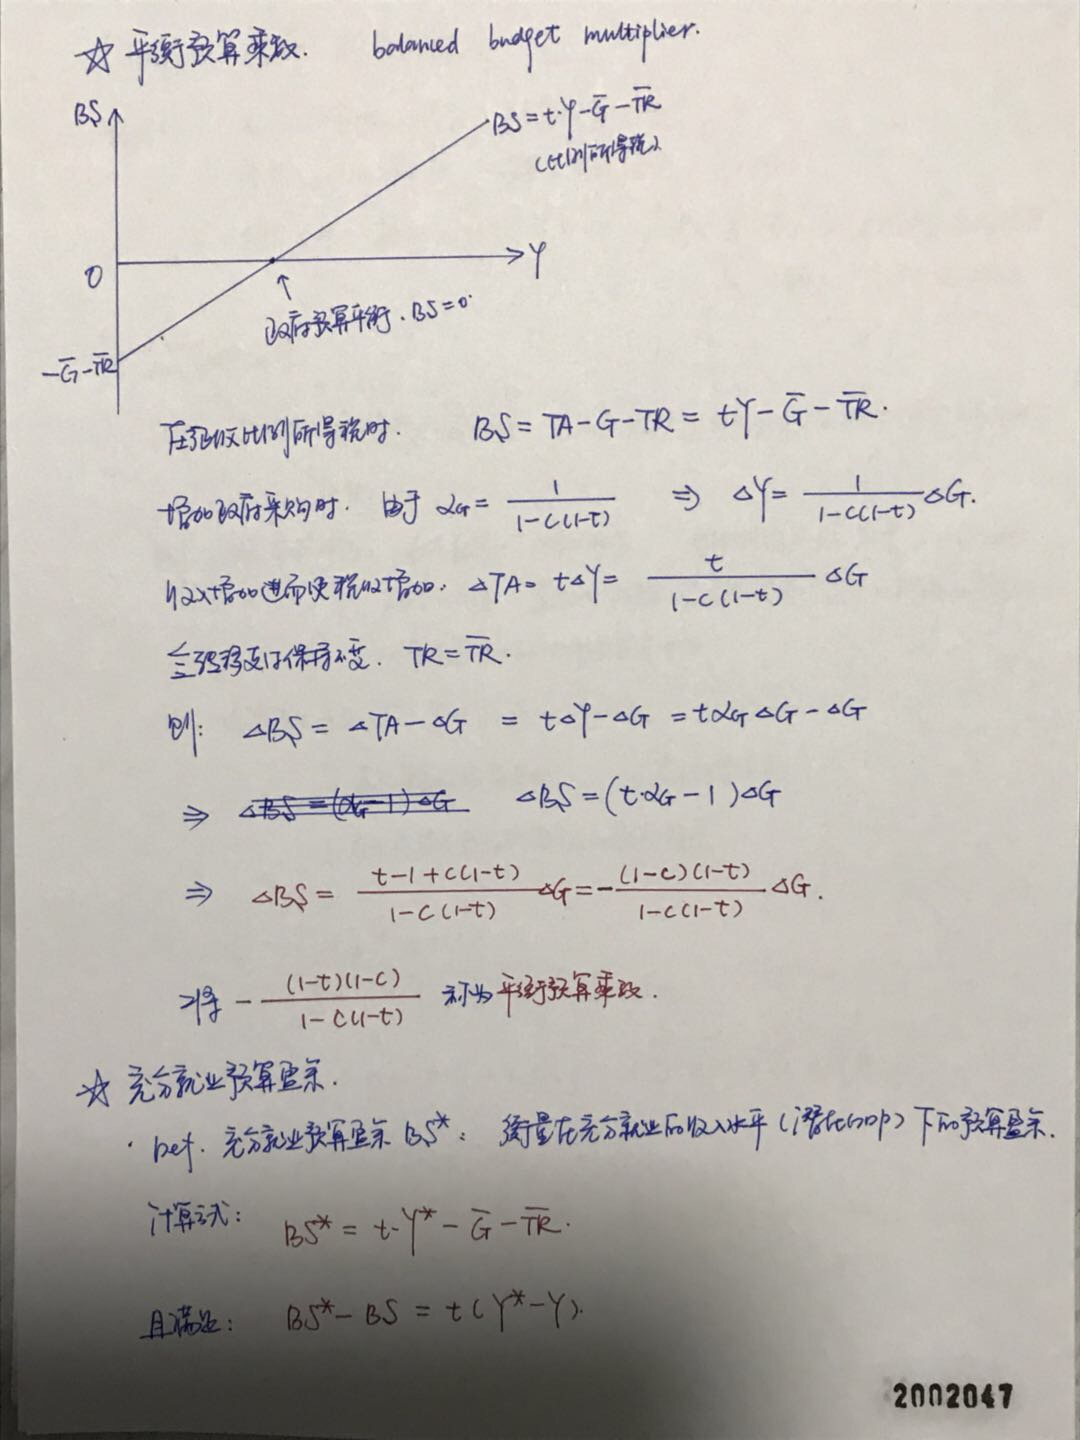 ☆ 平衡预算乘数. balanced budget multiplier.
BS
BS=t·Y-G̅-T̅R̅
(比例所得税)
0
Y
政府预算平衡. BS=0.
-G̅-T̅R̅
在征收比例所得税时. BS=TA-G-TR=tY-G̅-T̅R̅.
增加政府采购时. 由于 αG = 1/(1-c(1-t)) ⇒ ΔY = 1/(1-c(1-t)) ΔG.
收入增加进而使税收增加. ΔTA = tΔY = t/(1-c(1-t)) ΔG
令转移支付保持不变. TR=T̅R̅.
则: ΔBS = ΔTA-ΔG = tΔY-ΔG = tαGΔG-ΔG
⇒ ΔBS=(αG-1)ΔG ΔBS=(t·αG-1)ΔG
⇒ ΔBS = (t-1+c(1-t))/(1-c(1-t)) ΔG = -(1-c)(1-t)/(1-c(1-t)) ΔG.
将 -(1-t)(1-c)/(1-c(1-t)) 称为平衡预算乘数.
☆ 充分就业预算盈余.
· Def. 充分就业预算盈余 BS*: 衡量在充分就业的收入水平(潜在GDP)下的预算盈余.
计算式: BS* = t·Y*-G̅-T̅R̅.
且满足: BS*-BS = t(Y*-Y).
2002047